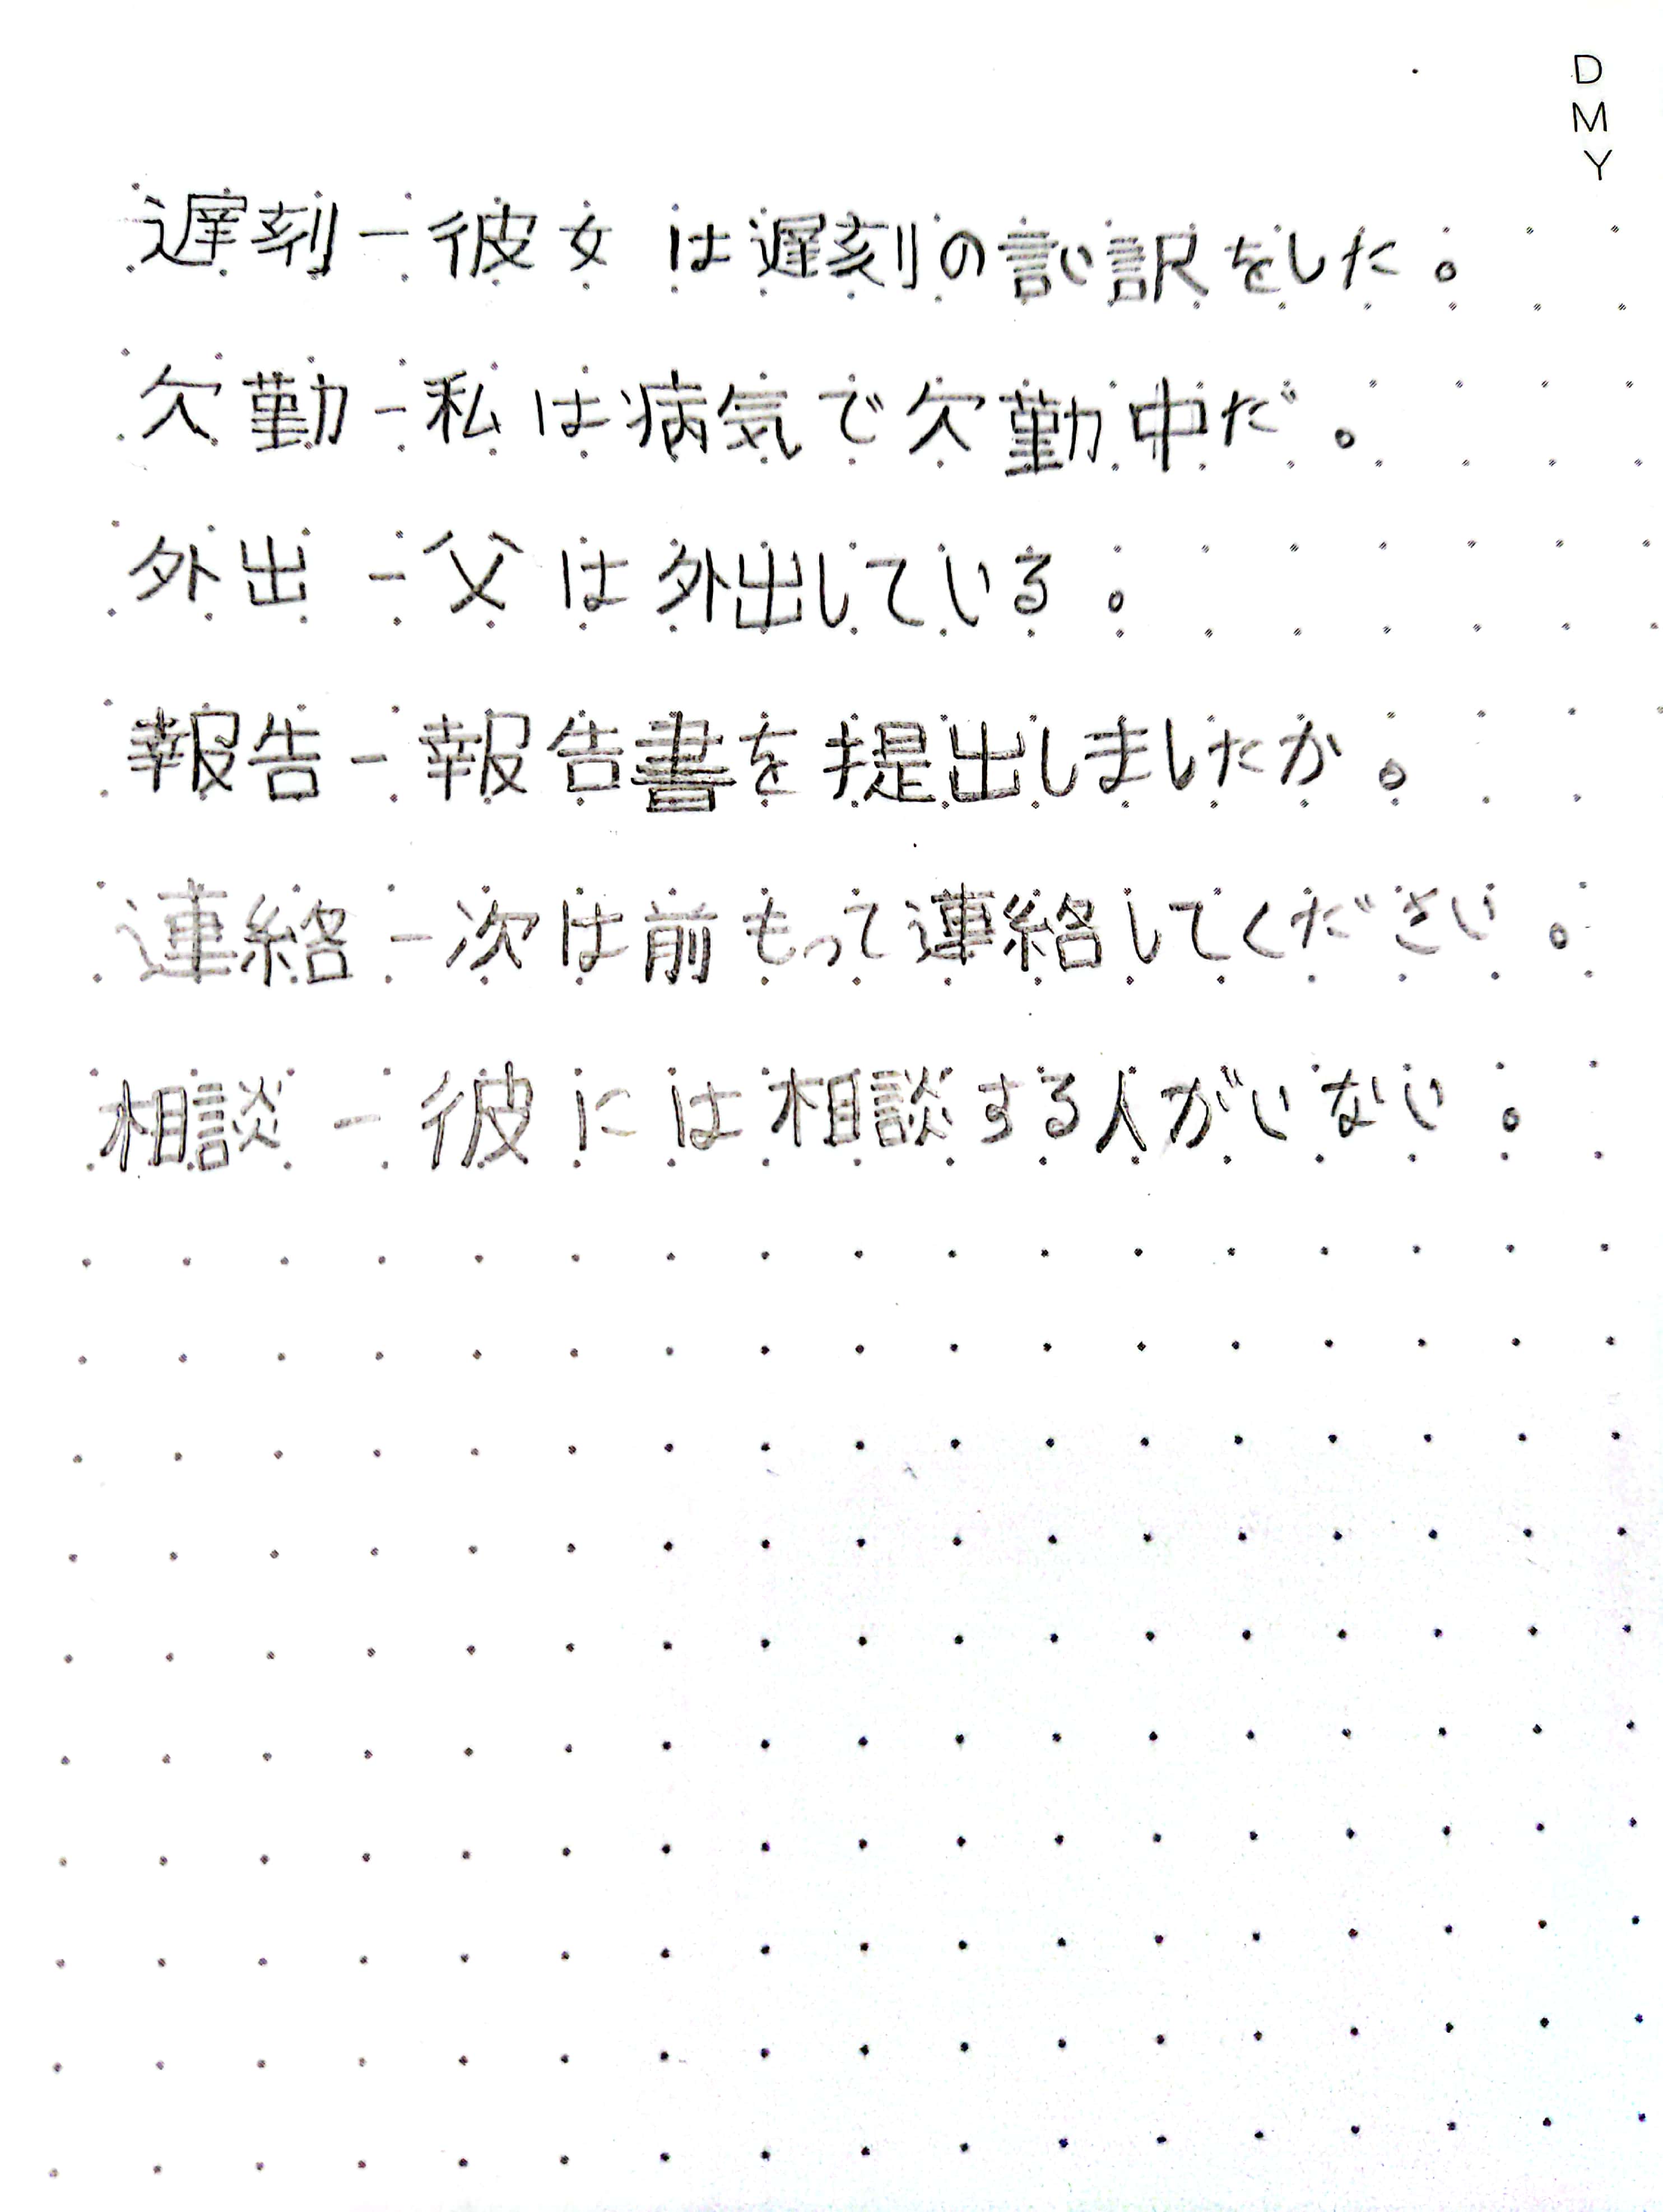 D
M
Y
遅刻 - 彼女は遅刻の言い訳をした。
欠勤 - 私は病気で欠勤中だ。
外出 - 父は外出している。
報告 - 報告書を提出しましたか。
連絡 - 次は前もって連絡してください。
相談 - 彼には相談する人がいない。